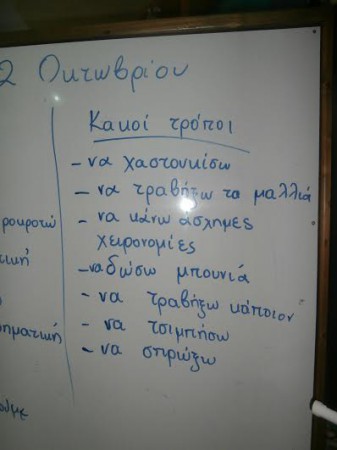 2 Οκτωβρίου
Κακοί τρόποι
- να χαστουκίσω
- να τραβήξω τα μαλλιά
- να κάνω άσχημες
χειρονομίες
- να δώσω μπουνιά
- να τραβήξω κάποιον
- να τσιμπήσω
- να σπρώξω